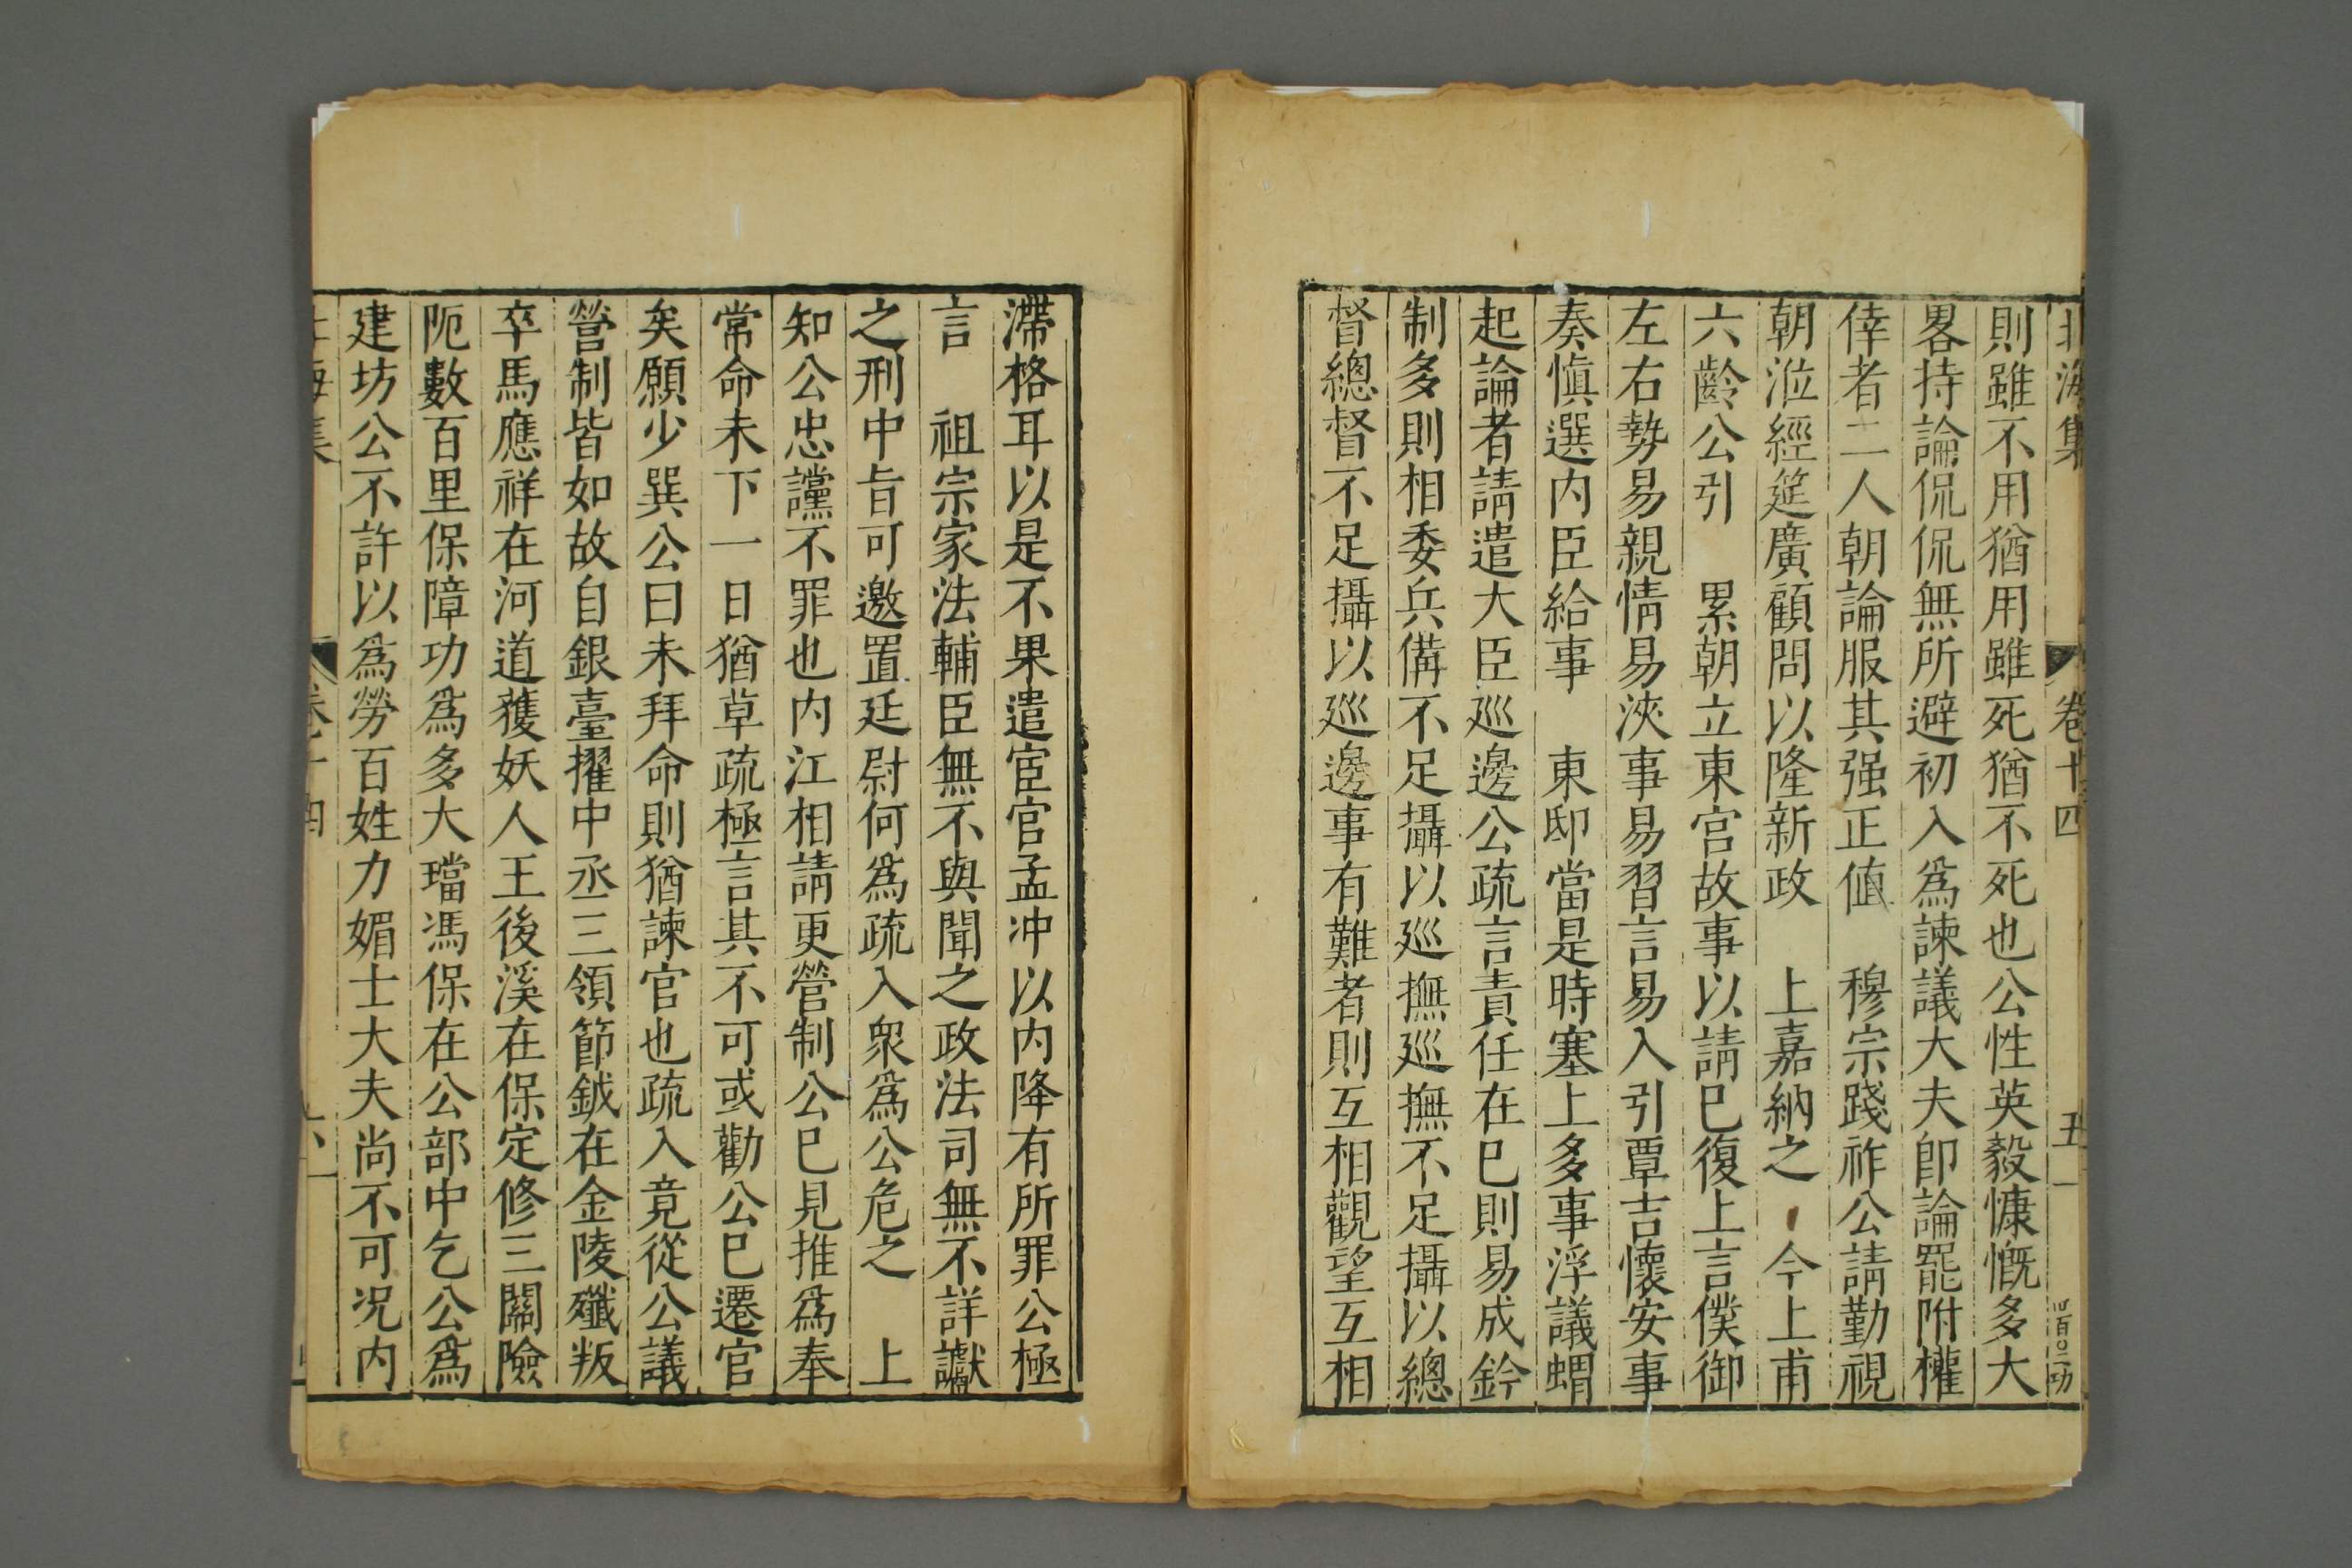 北海集 卷十四 五
則雖不用猶用雖死猶不死也公性英毅慷慨多大
畧持論侃侃無所避初入爲諫議大夫卽論罷附權
倖者二人朝論服其强正値 穆宗踐祚公請勤視
朝涖經筵廣顧問以隆新政 上嘉納之 今上甫
六齡公引 累朝立東宫故事以請已復上言僕御
左右勢易親情易浹事易習言易入引覃吉懷安事
奏愼選内臣給事 東邸當是時塞上多事浮議蝟
起論者請遣大臣廵邊公疏言責任在已則易成鈐
制多則相委兵備不足攝以廵撫廵撫不足攝以總
督總督不足攝以廵邊事有難者則互相觀望互相
滯格耳以是不果遣宦官孟冲以内降有所罪公極
言 祖宗家法輔臣無不與聞之政法司無不詳讞
之刑中旨可邀置廷尉何爲疏入衆爲公危之 上
知公忠讜不罪也内江相請更營制公巳見推爲奉
常命未下一日猶草疏極言其不可或勸公巳遷官
矣願少巽公曰未拜命則猶諫官也疏入竟從公議
營制皆如故自銀臺擢中丞三領節鉞在金陵殲叛
卒馬應祥在河道獲妖人王後溪在保定修三關險
阨數百里保障功爲多大璫馮保在公部中乞公爲
建坊公不許以爲勞百姓力媚士大夫尚不可况内
卷十四